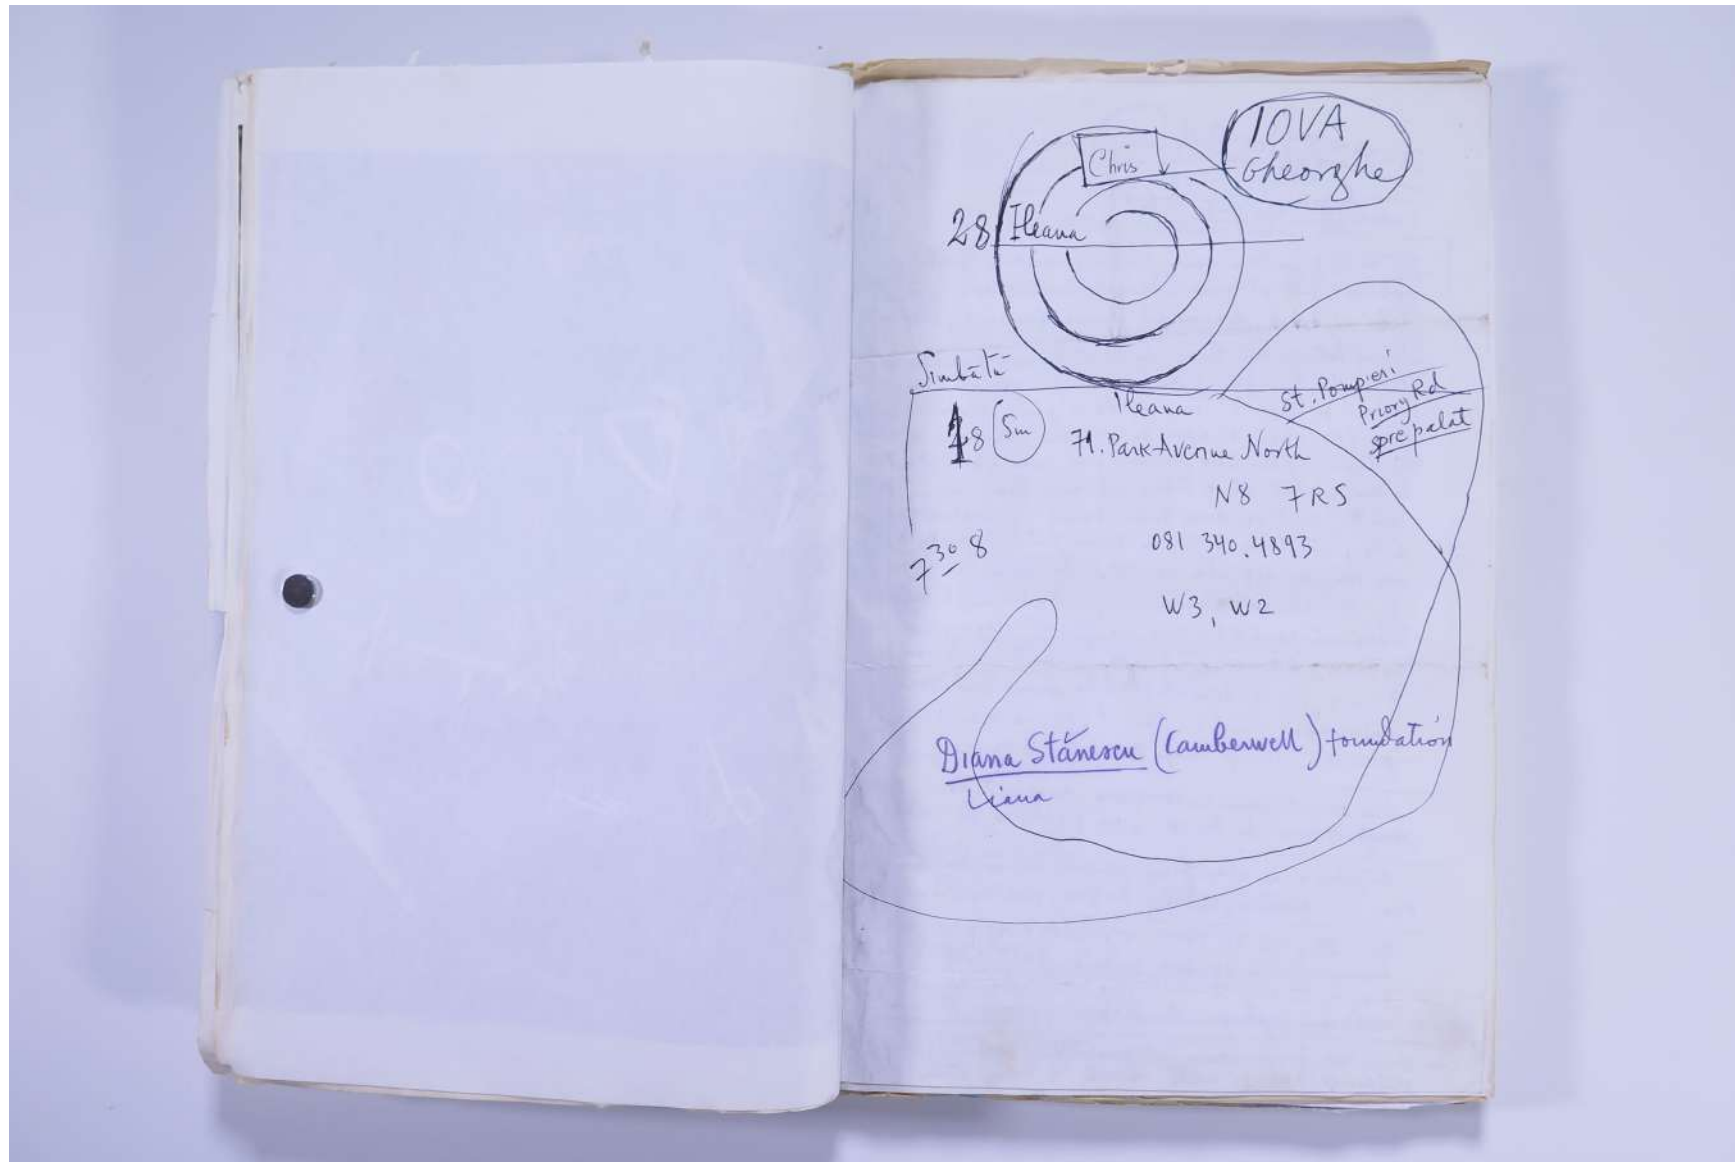 IOVA
Gheorghe
Chris
28 Ileana
Simbătă
Ileana
St. Pompieri
Priory Rd
spre palat
18 Sm
71. Park Avenue North
N8 7RS
7 30 8
081 340.4893
W3, W2
Diana Stănescu (Camberwell) foundation
Liana